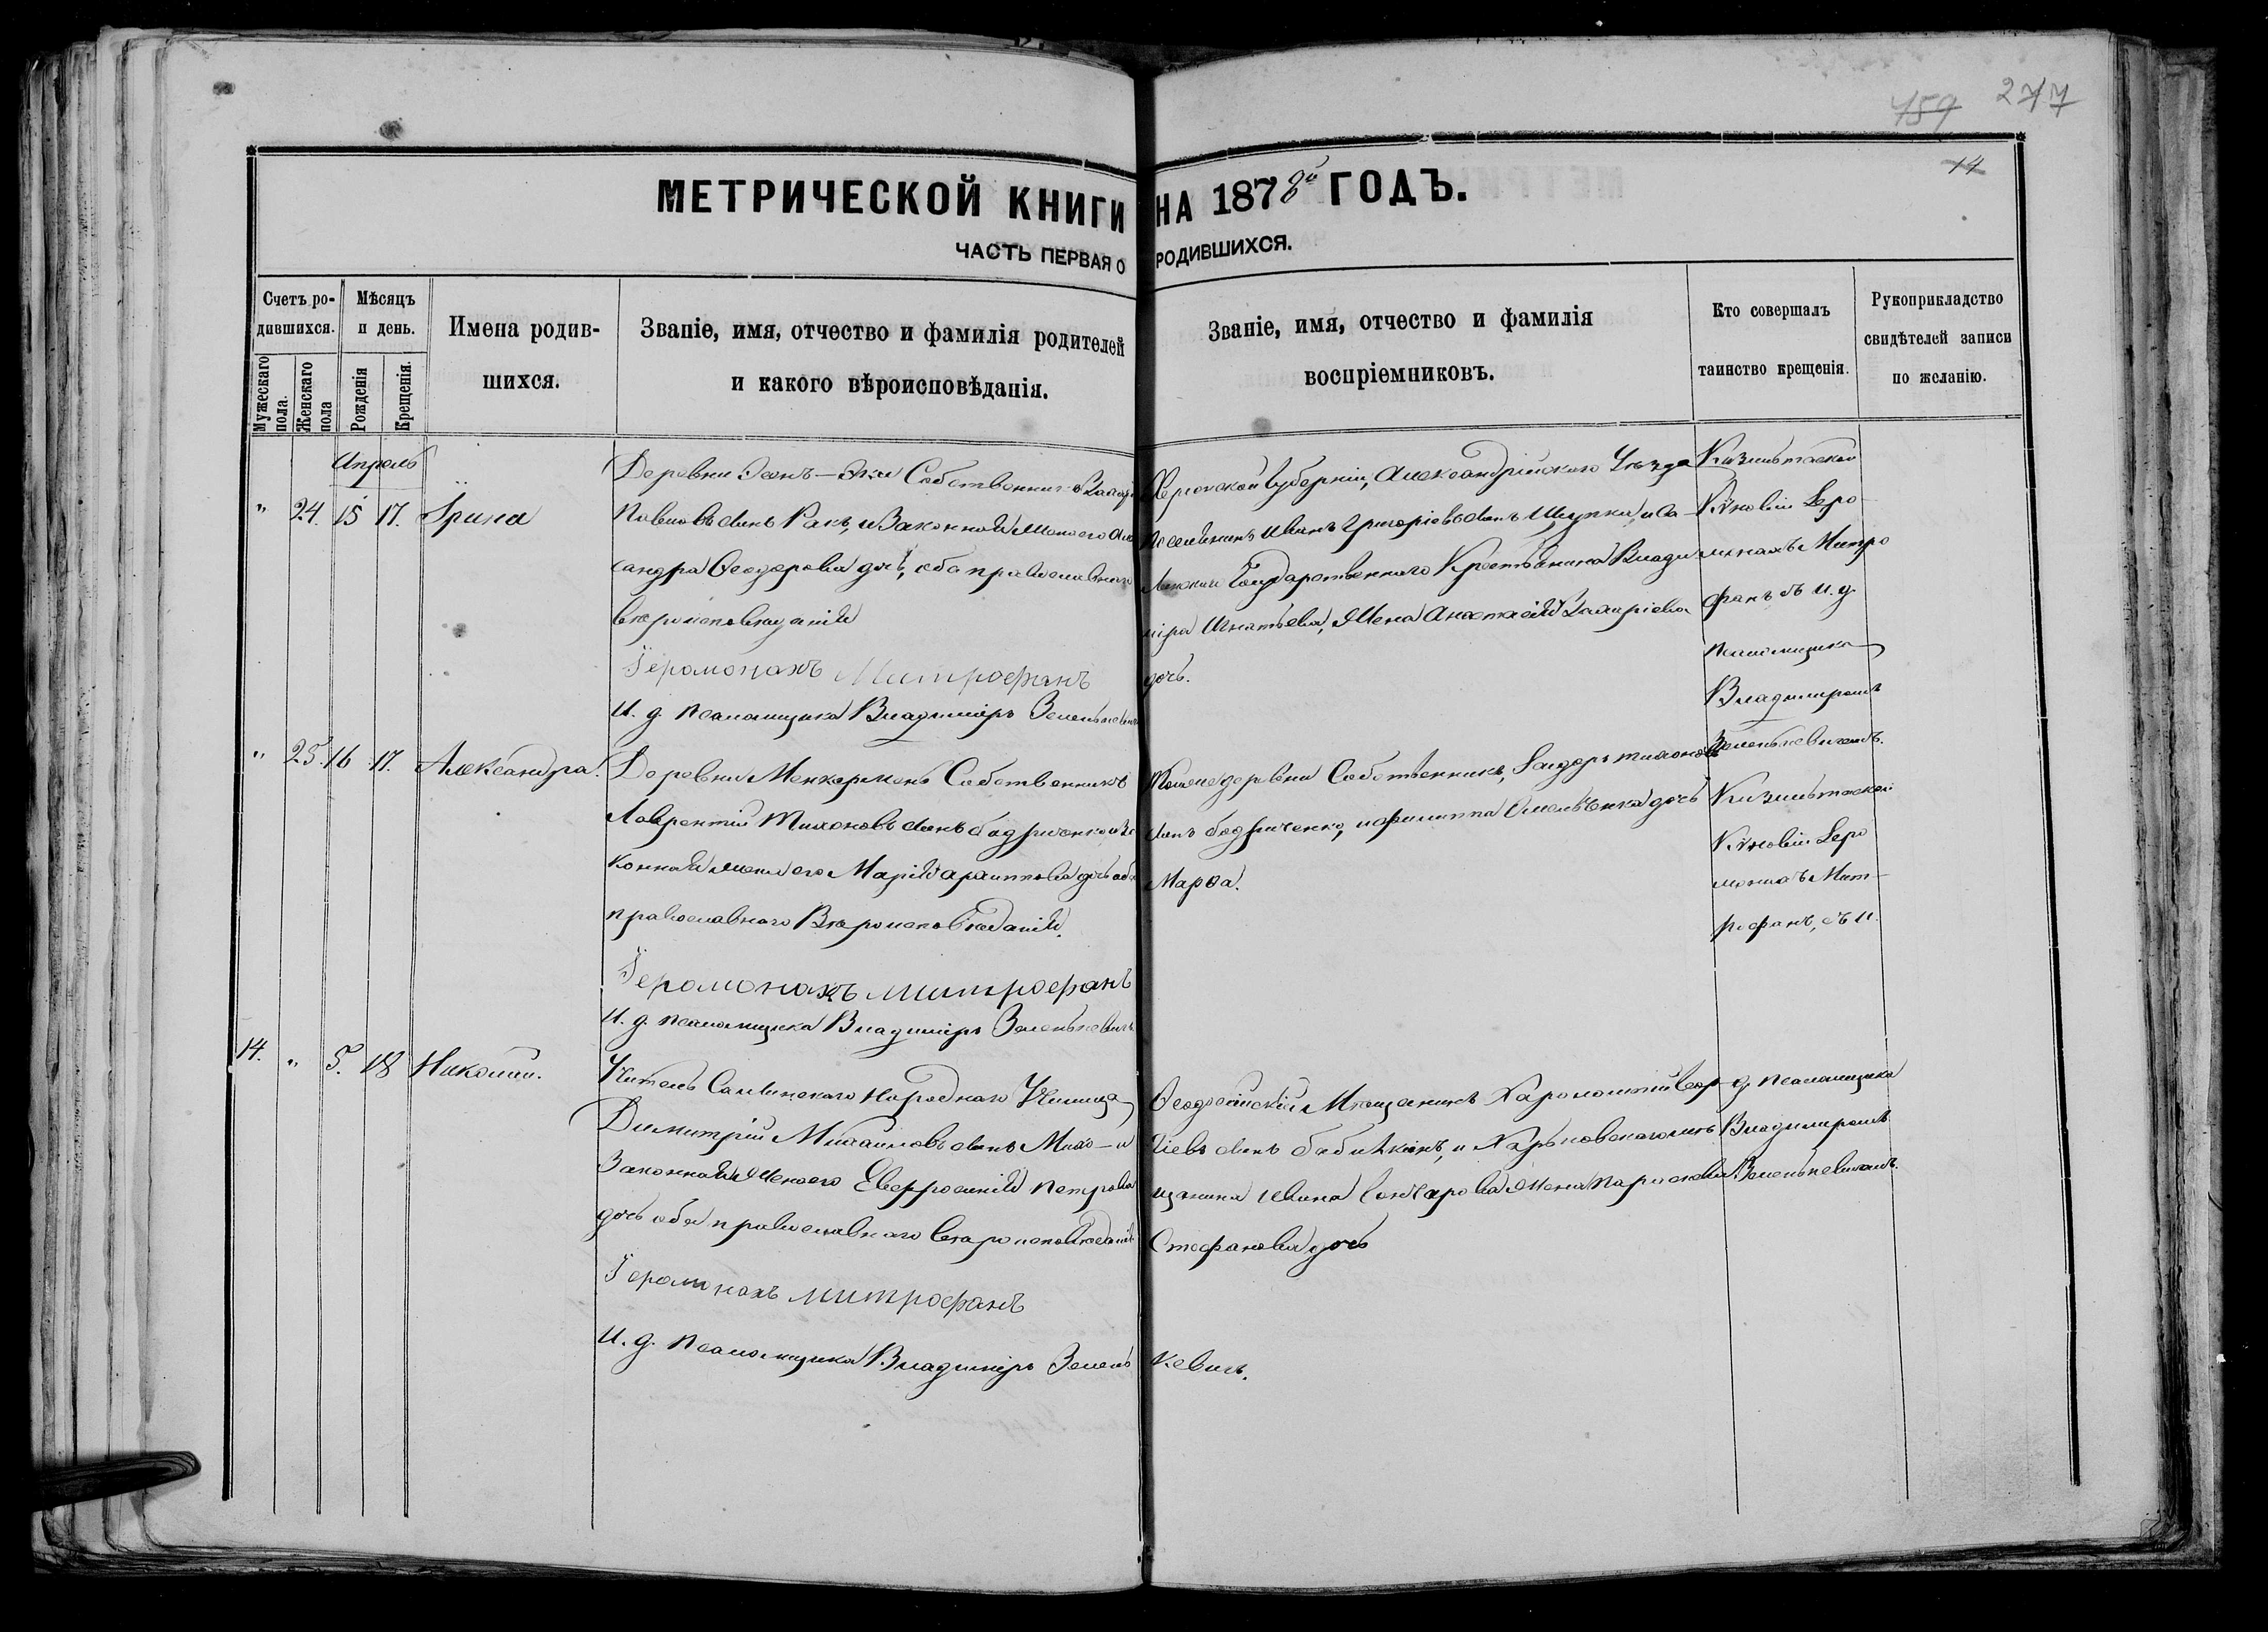 459 277
14
МЕТРИЧЕСКОЙ КНИГИ НА 1878й ГОДЪ.
ЧАСТЬ ПЕРВАЯ О РОДИВШИХСЯ.
Счетъ родившихся.
Мужескаго пола.
Женскаго пола
Мѣсяцъ и день.
Рожденія
Крещенія.
Имена родившихся.
Званіе, имя, отчество и фамилія родителей
и какого вѣроисповѣданія.
Званіе, имя, отчество и фамилія
воспріемниковъ.
Кто совершалъ
таинство крещенія.
Рукоприкладство
свидѣтелей записи
по желанію.
Апрель
" 24. 15 17. Ирина
Деревни Собственникъ
Павловъ сынъ Ракъ, и Законная Жена его Але
сандра Ѳеодорова дочь, оба православнаго
вѣроисповѣданія
Іеромонахъ Митрофанъ
И. д. псаломщика Владиміръ Зеленкевичъ
Херсонской Губерніи, Александрійскаго Уѣзда
Поселянинъ Иванъ Григоріевъ сынъ
Государственнаго Крестьянина Влади
міра Игнатьева, Жена Анастасія
дочь.
Кизильташской
Киновіи Іеро
монахъ Митро
фанъ съ и. д.
псаломщика
Владиміромъ
Зеленкевичемъ.
" 25. 16 17. Александра.
Деревни Собственникъ
Лаврентій Тихоновъ сынъ и За
конная жена его Марія дочь оба
православнаго Вѣроисповѣданія.
Іеромонахъ Митрофанъ
И. д. псаломщика Владиміръ Зеленкевичъ
Тойже деревни Собственникъ, Тихоновъ
сынъ и Филиппа дочь
Марѳа.
Кизильташской
Киновіи Іеро
монахъ Мит-
рофанъ, съ и.
14. " 5. 18 Николай.
Учитель Народнаго Училища
Димитрій Михаиловъ сынъ и
Законная Жена его Евфросинія Петрова
дочь оба православнаго вѣроисповѣданія
Іеромонахъ Митрофанъ
И. д. Псаломщика Владиміръ Зелен
кевичъ.
Ѳеодосійскій Мѣщанинъ
сынъ и Харьковскаго мѣ
щанина Ивана Гончарова Жена Параскева
Стефанова дочь
д. псаломщика
Владиміромъ
Зеленкевичемъ.